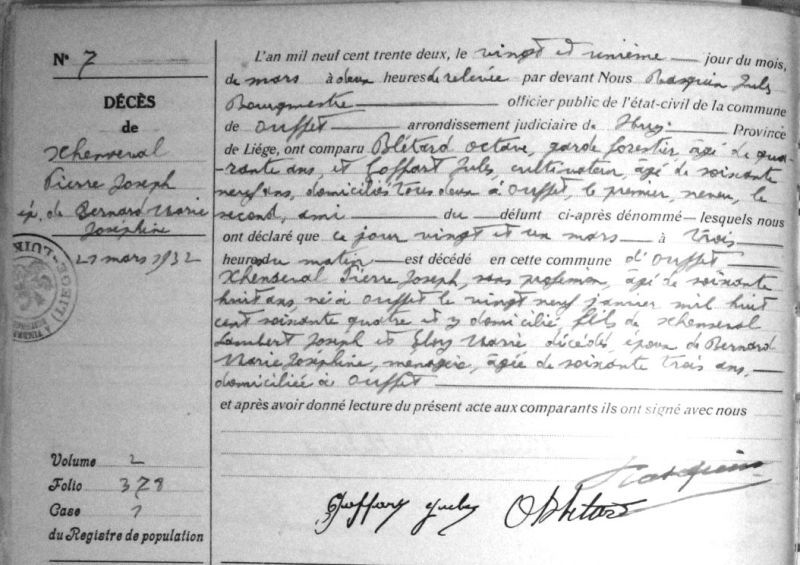 N° 7
DÉCÈS
de
Xhenseval
Pierre Joseph
ép. de Bernard Marie
Joséphine
21 mars 1932
L'an mil neuf cent trente deux, le vingt et unième jour du mois,
de mars à deux heures de relevée par devant Nous Rasquin Jules
Bourgmestre officier public de l'état-civil de la commune
de Ouffet arrondissement judiciaire de Huy Province
de Liége, ont comparu Blétard Octave, garde forestier, âgé de qua-
-rante ans, et Goffart Jules, cultivateur, âgé de soixante
neuf ans, domiciliés tous deux à Ouffet, le premier, neveu, le
second, ami du défunt ci-après dénommé — lesquels nous
ont déclaré que ce jour vingt et un mars à trois
heures du matin est décédé en cette commune d'Ouffet
Xhenseval Pierre Joseph, sans profession, âgé de soixante
huit ans né à Ouffet le vingt neuf janvier mil huit
cent soixante quatre et y domicilié, fils de Xhenseval
Lambert Joseph et Eloy Marie décédés, époux de Bernard
Marie Joséphine, ménagère, âgée de soixante trois ans,
domiciliée à Ouffet
et après avoir donné lecture du présent acte aux comparants ils ont signé avec nous
Rasquin
Goffart Jules OBlétard
Volume 2
Folio 378
Case 1
du Registre de population